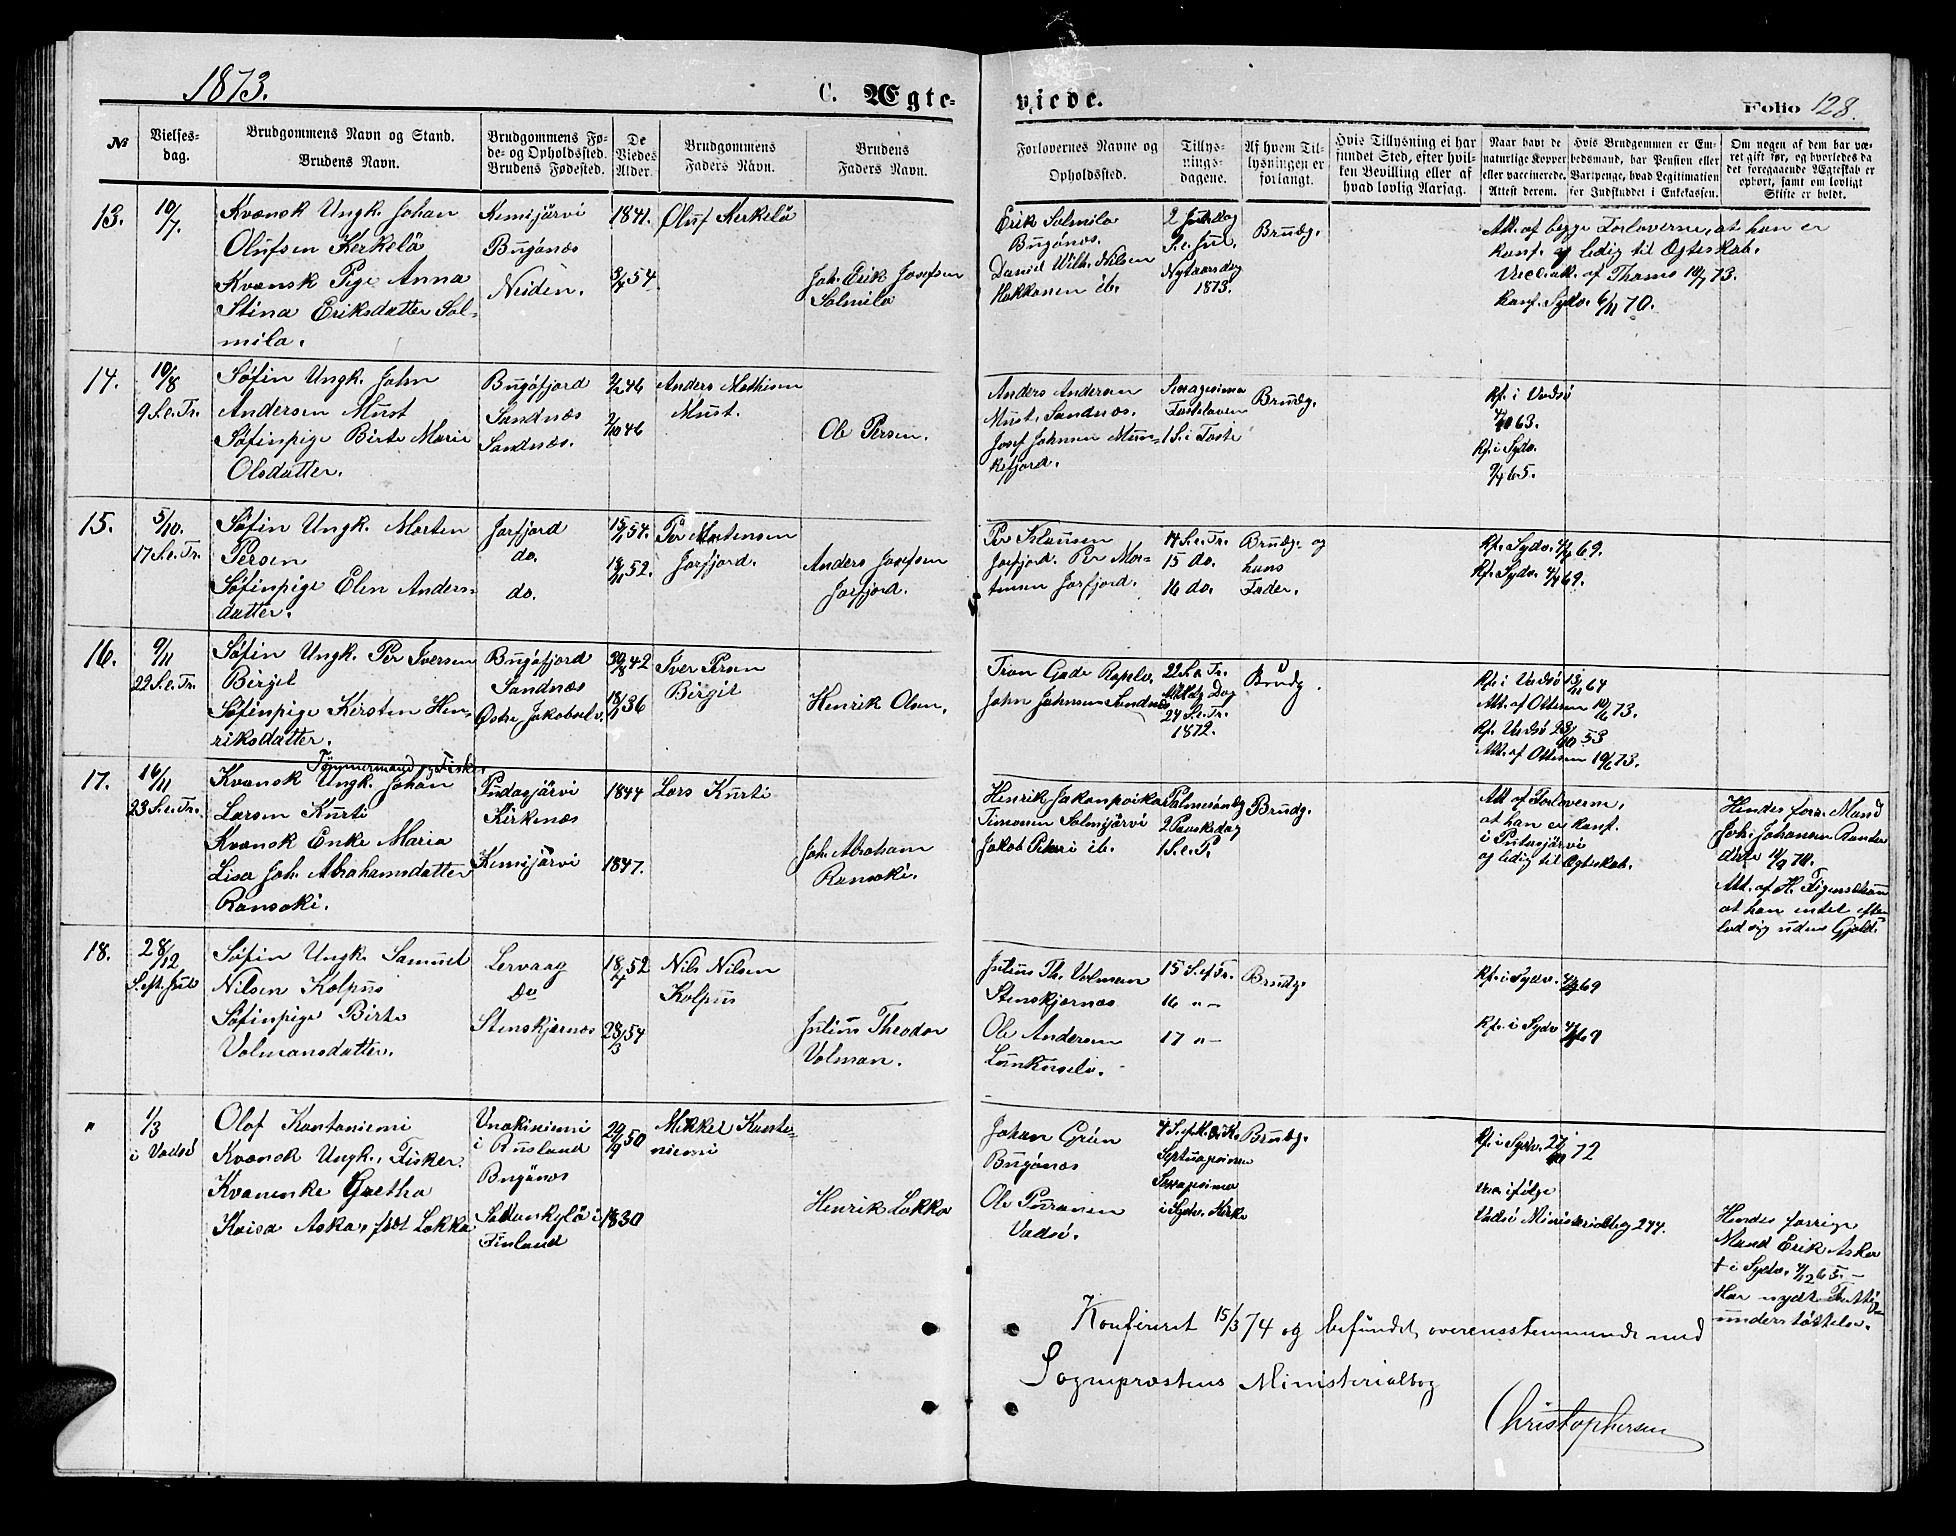 1873.
C. Ægteviede.
Folio 128.
№
Vielsesdag.
Brudgommens Navn og Stand.
Brudens Navn.
Brudgommens Føde- og Opholdssted.
Brudens Fødested.
De Viedes Alder.
Brudgommens Faders Navn.
Brudens Faders Navn.
Forlovernes Navne og Opholdssted.
Tillysningsdagene.
Af hvem Tillysningen er forlangt.
Hvis Tillysning ei har fundet Sted, efter hvilken Bevilling eller af hvad lovlig Aarsag.
Naar havt de naturlige Kopper eller vaccinerede. Attest derom.
Hvis Brudgommen er Embedsmand, har Pension eller Vartpenge, hvad Legitimation for Indskuddet i Enkekassen.
Om nogen af dem har været gift før, og hvorledes da det foregaaende Ægteskab er ophørt, samt om lovligt Skifte er holdt.
13.
10/7.
Kvænsk Ungk. Johan
Olufsen Kerkelä
Kvænsk Pige Anna
Stina Eriksdatter Salmila.
Kemijärvi
Bugönæs
Neiden.
1841.
3/4 54
Oluf Kerkelä
Joh. Erik Josefsen
Salmila
Erik Salmila
Bugönæs.
Daniel Wilh. Nilsen
Hakkanen ib.
2 Juledag
S. e. Jul.
Nytaarsdag
1873.
Brudg.
Att. af begge Forloverne, at han er
konf. og ledig til Ægteskab.
Vacc. att. af Thams 10/7 73.
Konf. Sydv. 6/11 70.
14.
10/8
9 S. e. Tr.
Søfin Ungk. John
Andersen Must
Søfinpige Birte Marie
Olsdatter.
Bugöfjord
Sandnæs
Sandnæs.
2/2 46
2/10 46
Anders Mathisen
Must.
Ole Persen.
Anders Andersen
Must, Sandnæs.
Josef Johnsen Munkefjord.
Sexagesima
Fastelaven
1 S. i Faste
Brudg.
Kf. i Vadsö
4/10 63.
Kf. i Sydv.
9/4 65.
15.
5/10.
17 S. e. Tr.
Søfin Ungk. Morten
Persen
Søfinpige Elen Andersdatter.
Jarfjord
do.
do.
15/1 54.
18/11 52.
Per Mortensen
Jarfjord.
Anders Josefsen
Jarfjord.
Per Klausen
Jarfjord. Per Mortensen Jarfjord.
14 S. e. Tr.
15 do.
16 do.
Brudg. og
hans
Fader.
Kf. Sydv. 4/4 69.
Kf. Sydv. 4/4 69.
16.
9/11
22 S. e. Tr.
Søfin Ungk. Per Iversen
Birgit
Søfinpige Kirsten Henriksdatter.
Bugöfjord
Sandnæs
Østre Jakobselv.
30/8 42
18/1 36
Iver Persen
Birgit
Henrik Olsen.
Tron Gade Ropelv.
John Johnsen Sandnæs
22 S. e. Tr.
Allehlg Dag
24 S. e. Tr.
1872.
Brudg.
Kf. i Vadsö 13/11 64
Att. af Ottesen 10/6 73.
Kf. Vadsö 23/10 53
Att. af Ottesen 10/6 73.
17.
16/11
23 S. e. Tr.
Tömmermand og Fisker
Kvænsk Ungk. Johan
Larsen Kurti
Kvænsk Enke Maria
Lisa Joh. Abrahamsdatter
Ransaki.
Pudasjärvi
Kirkenæs
Kemijärvi
1844
1847.
Lars Kurti
Joh. Abraham
Ransaki.
Henrik
Timonen Salmijärvi
Jakob Peteri ib.
Palmesöndag
2 Paaskedag
1 S. e. P.
Brudg.
Att. af Forloverne,
at han er konf.
i
og ledig til Ægteskab.
Hendes forr. Mand
Joh. Johansen
döde
Att. af H.
at han intet efterlod sig uden Gjæld.
18.
28/12
S. eft. Jul
Søfin Ungk. Samuel
Nilsen Kolpus
Søfinpige Birte
Volmansdatter.
Lervaag
Do
Stenskjernæs
18/4 52
28/3 54
Nils Nilsen
Kolpus
Julius Theodor
Volman.
Julius Th. Volman
Stenskjernæs
Ole Andersen
Lankerselv.
15 S. ef Tr.
16 " -
17 " -
Brudg.
Kf. i Sydv. 4/4 69
Kf. i Sydv 4/4 69
"
1/3
i Vadsö
Olof Kantoniemi
Kvænsk Ungk., Fisker.
Kvænenke Gretha
Kaisa Asko, född Lokka
Vuokiniemi
i Rusland
Bugönæs
Sodankylä i
Finland
29/9 50
1830
Mikkel Kantoniemi
Henrik Lokka
Johan Grön
Bugönæs
Ole Puranen
Vadsö.
Septuagesima
Sexagesima
i Sydv. Kirke
Brudg.
Kf. i Sydv. 27/10 72
Vacc. ifölge
Vadsö Ministerialbog 244.
Hendes forrige
Mand Erik Asko
† i Sydv. 4/12 65. -
Har nydt Fattigunderstöttelse.
Konfereret 15/3 74 og befundet overensstemmende med
Sogneprestens Ministerialbog
Christophersen